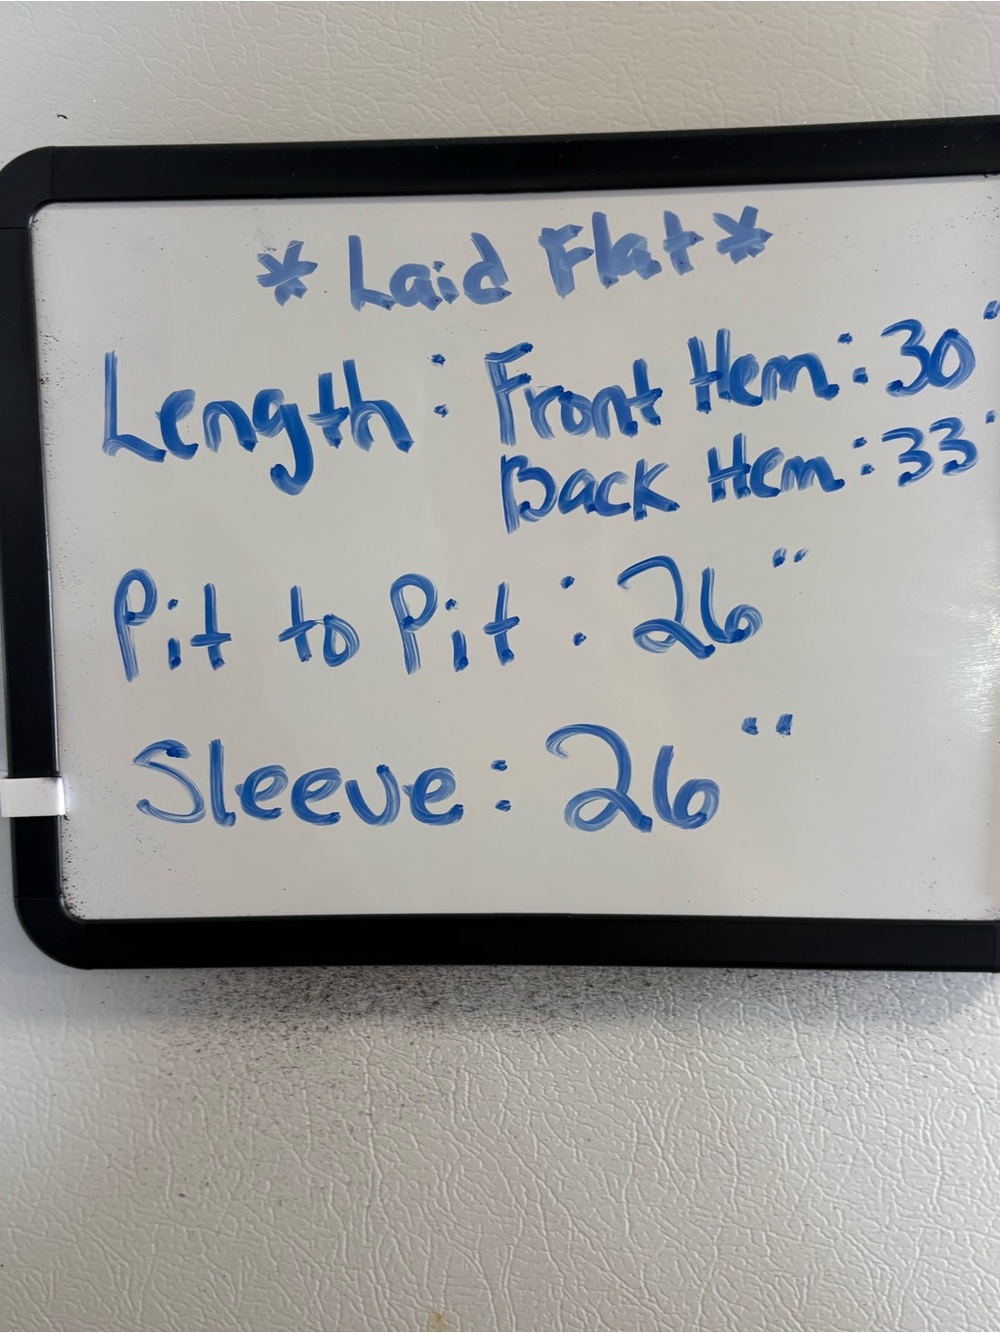 * Laid Flat *
Length: Front Hem: 30"
Back Hem: 33"
Pit to Pit: 26"
Sleeve: 26"